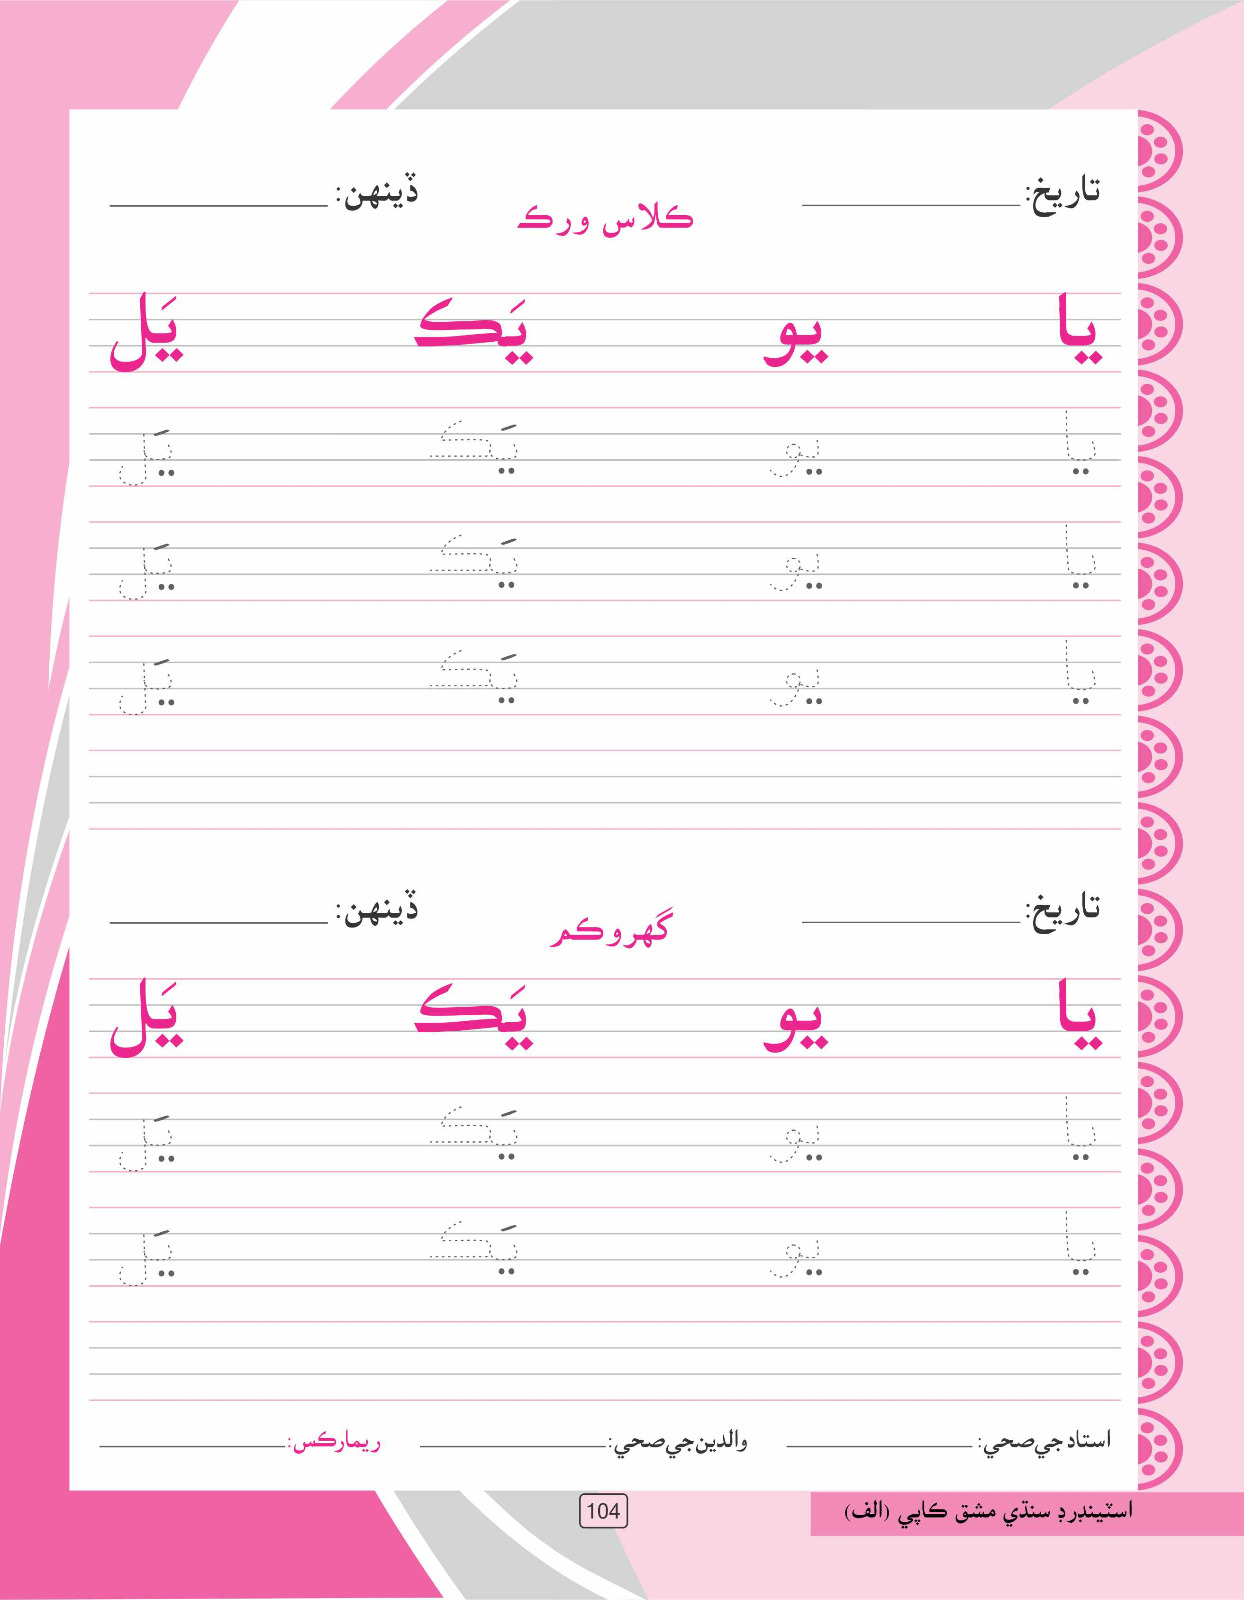 تاريخ: ڏينهن:
ڪلاس ورڪ
يا يو يَڪ يَل
يا يو يَڪ يَل
يا يو يَڪ يَل
يا يو يَڪ يَل
تاريخ: ڏينهن:
گهروڪم
يا يو يَڪ يَل
يا يو يَڪ يَل
يا يو يَڪ يَل
استاد جي صحي: والدين جي صحي: ريمارڪس:
اسٽينڊرڊ سنڌي مشق ڪاپي (الف)
104